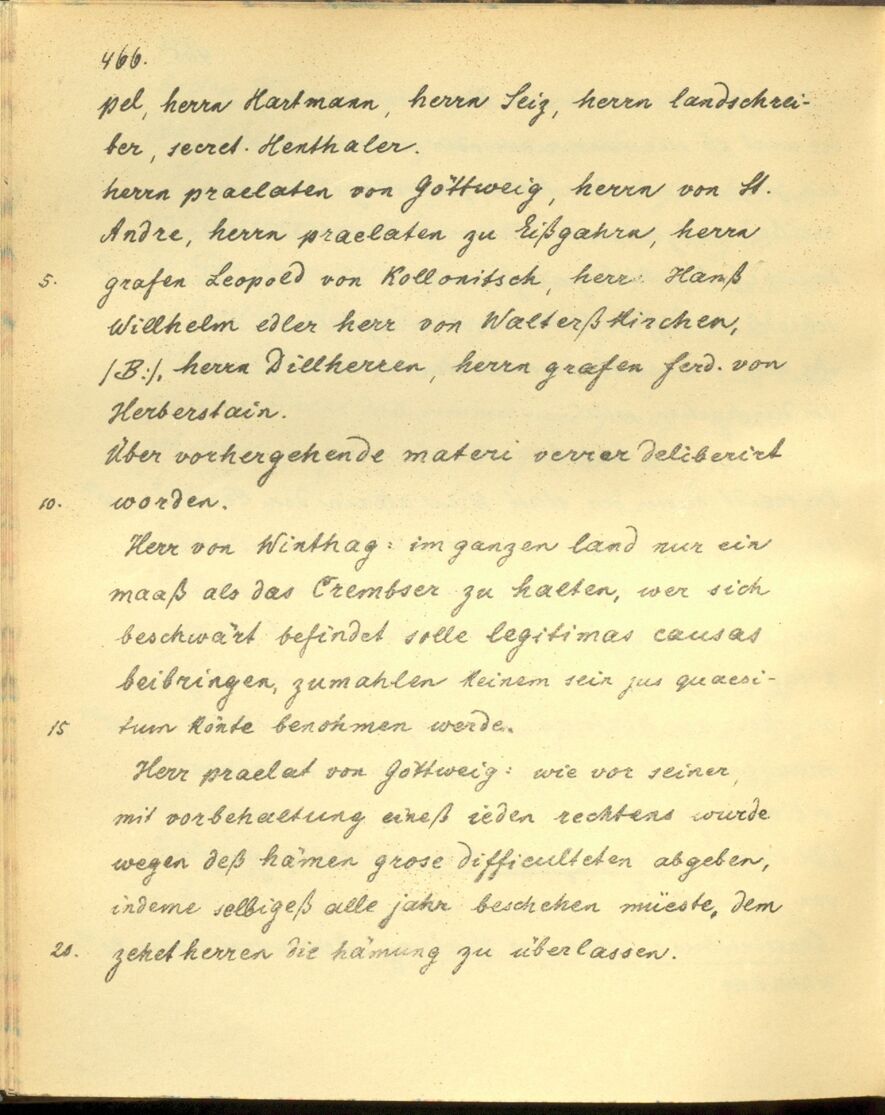 466.
pel, herrn Hartmann, herrn Seiz, herrn landschrei-
ber, secret. Henthaler.
herrn praelaten von Göttweig, herrn von St.
Andre, herrn praelaten zu Eißgahrn, herrn
5. grafen Leopold von Kollonitsch, herr Hanß
Willhelm edler herr von Walterßkirchen,
/:B:/, herrn Dillherren, herrn grafen ferd. von
Herberstain.
Über vorhergehende materi verrer deliberirt
10. worden.
Herr von Winthag: im ganzen land nur ein
maaß als das Crembser zu halten, wer sich
beschwärt befindet solle legitimas causas
beibringen, zumahlen keinem sein jus quaesi-
15 tum könte benohmen werde.
Herr praelat von Göttweig: wie vor seiner,
mit vorbehaltung eineß ieden rechtens wurde
wegen deß hämen grose difficulteten abgeben,
indeme selbigeß alle jahr beschehen müeste, dem
20. zehet herren die hämung zu überlassen.